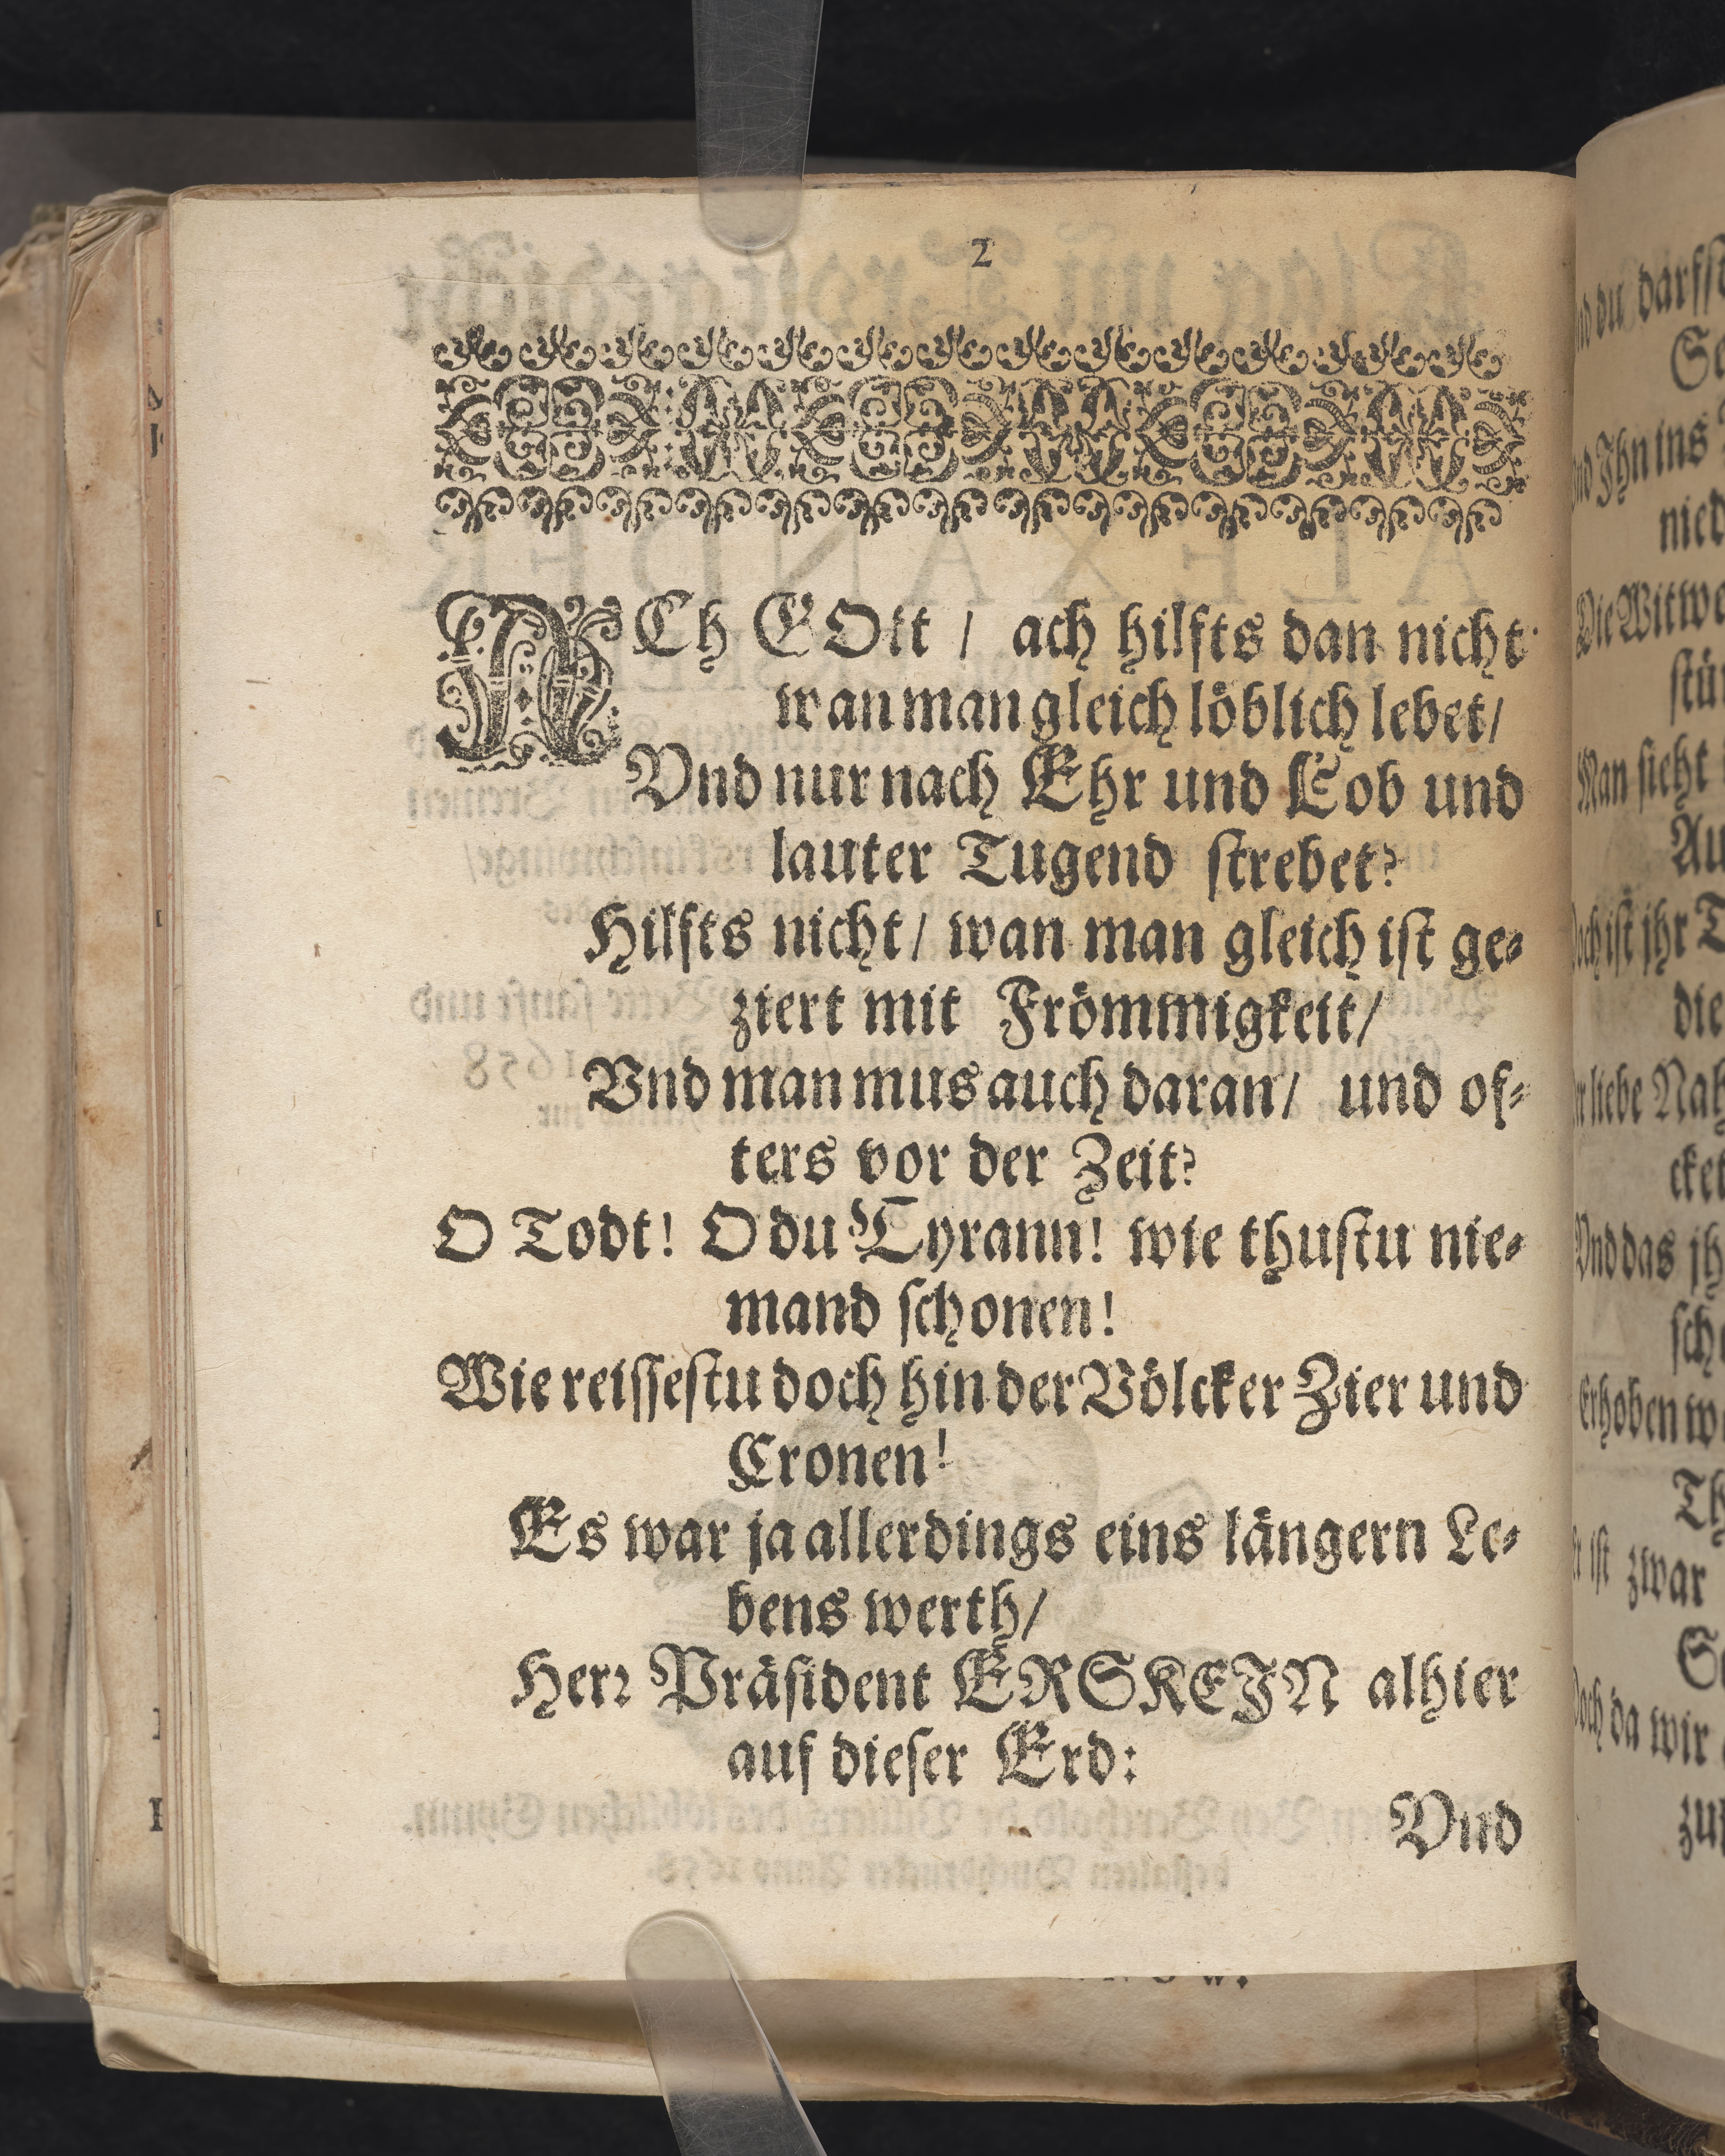 2
ACh GOtt / ach hilfts dan nicht
wan man gleich löblich lebet/
Vnd nur nach Ehr und Lob und
lauter Tugend strebet?
Hilfts nicht/ wan man gleich ist ge-
ziert mit Frömmigkeit/
Vnd man mus auch daran/ und of-
ters vor der Zeit?
O Todt! O du Tyrann! wie thustu nie-
mand schonen!
Wie reissestu doch hin der Völcker Zier und
Cronen!
Es war ja allerdings eins längern Le-
bens werth/
Herr Präsident ERSKEIN alhier
auf dieser Erd:
Vnd